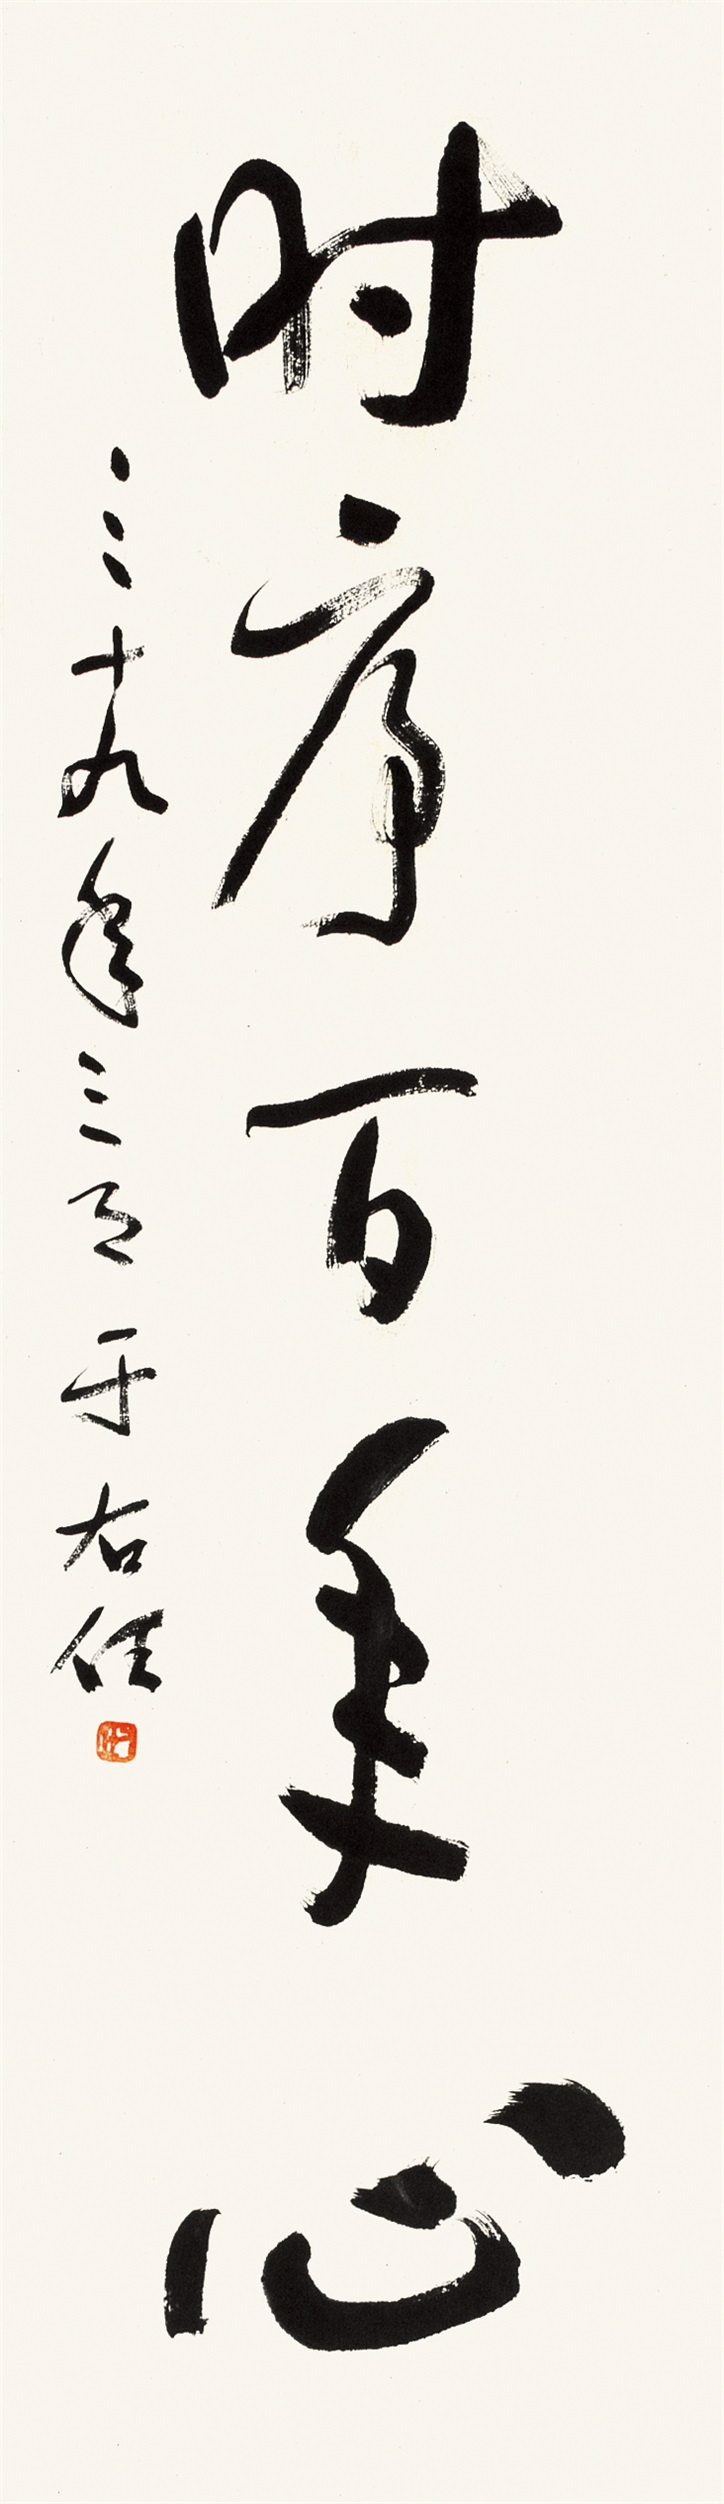 時序百年心
三十九年三月 于右任